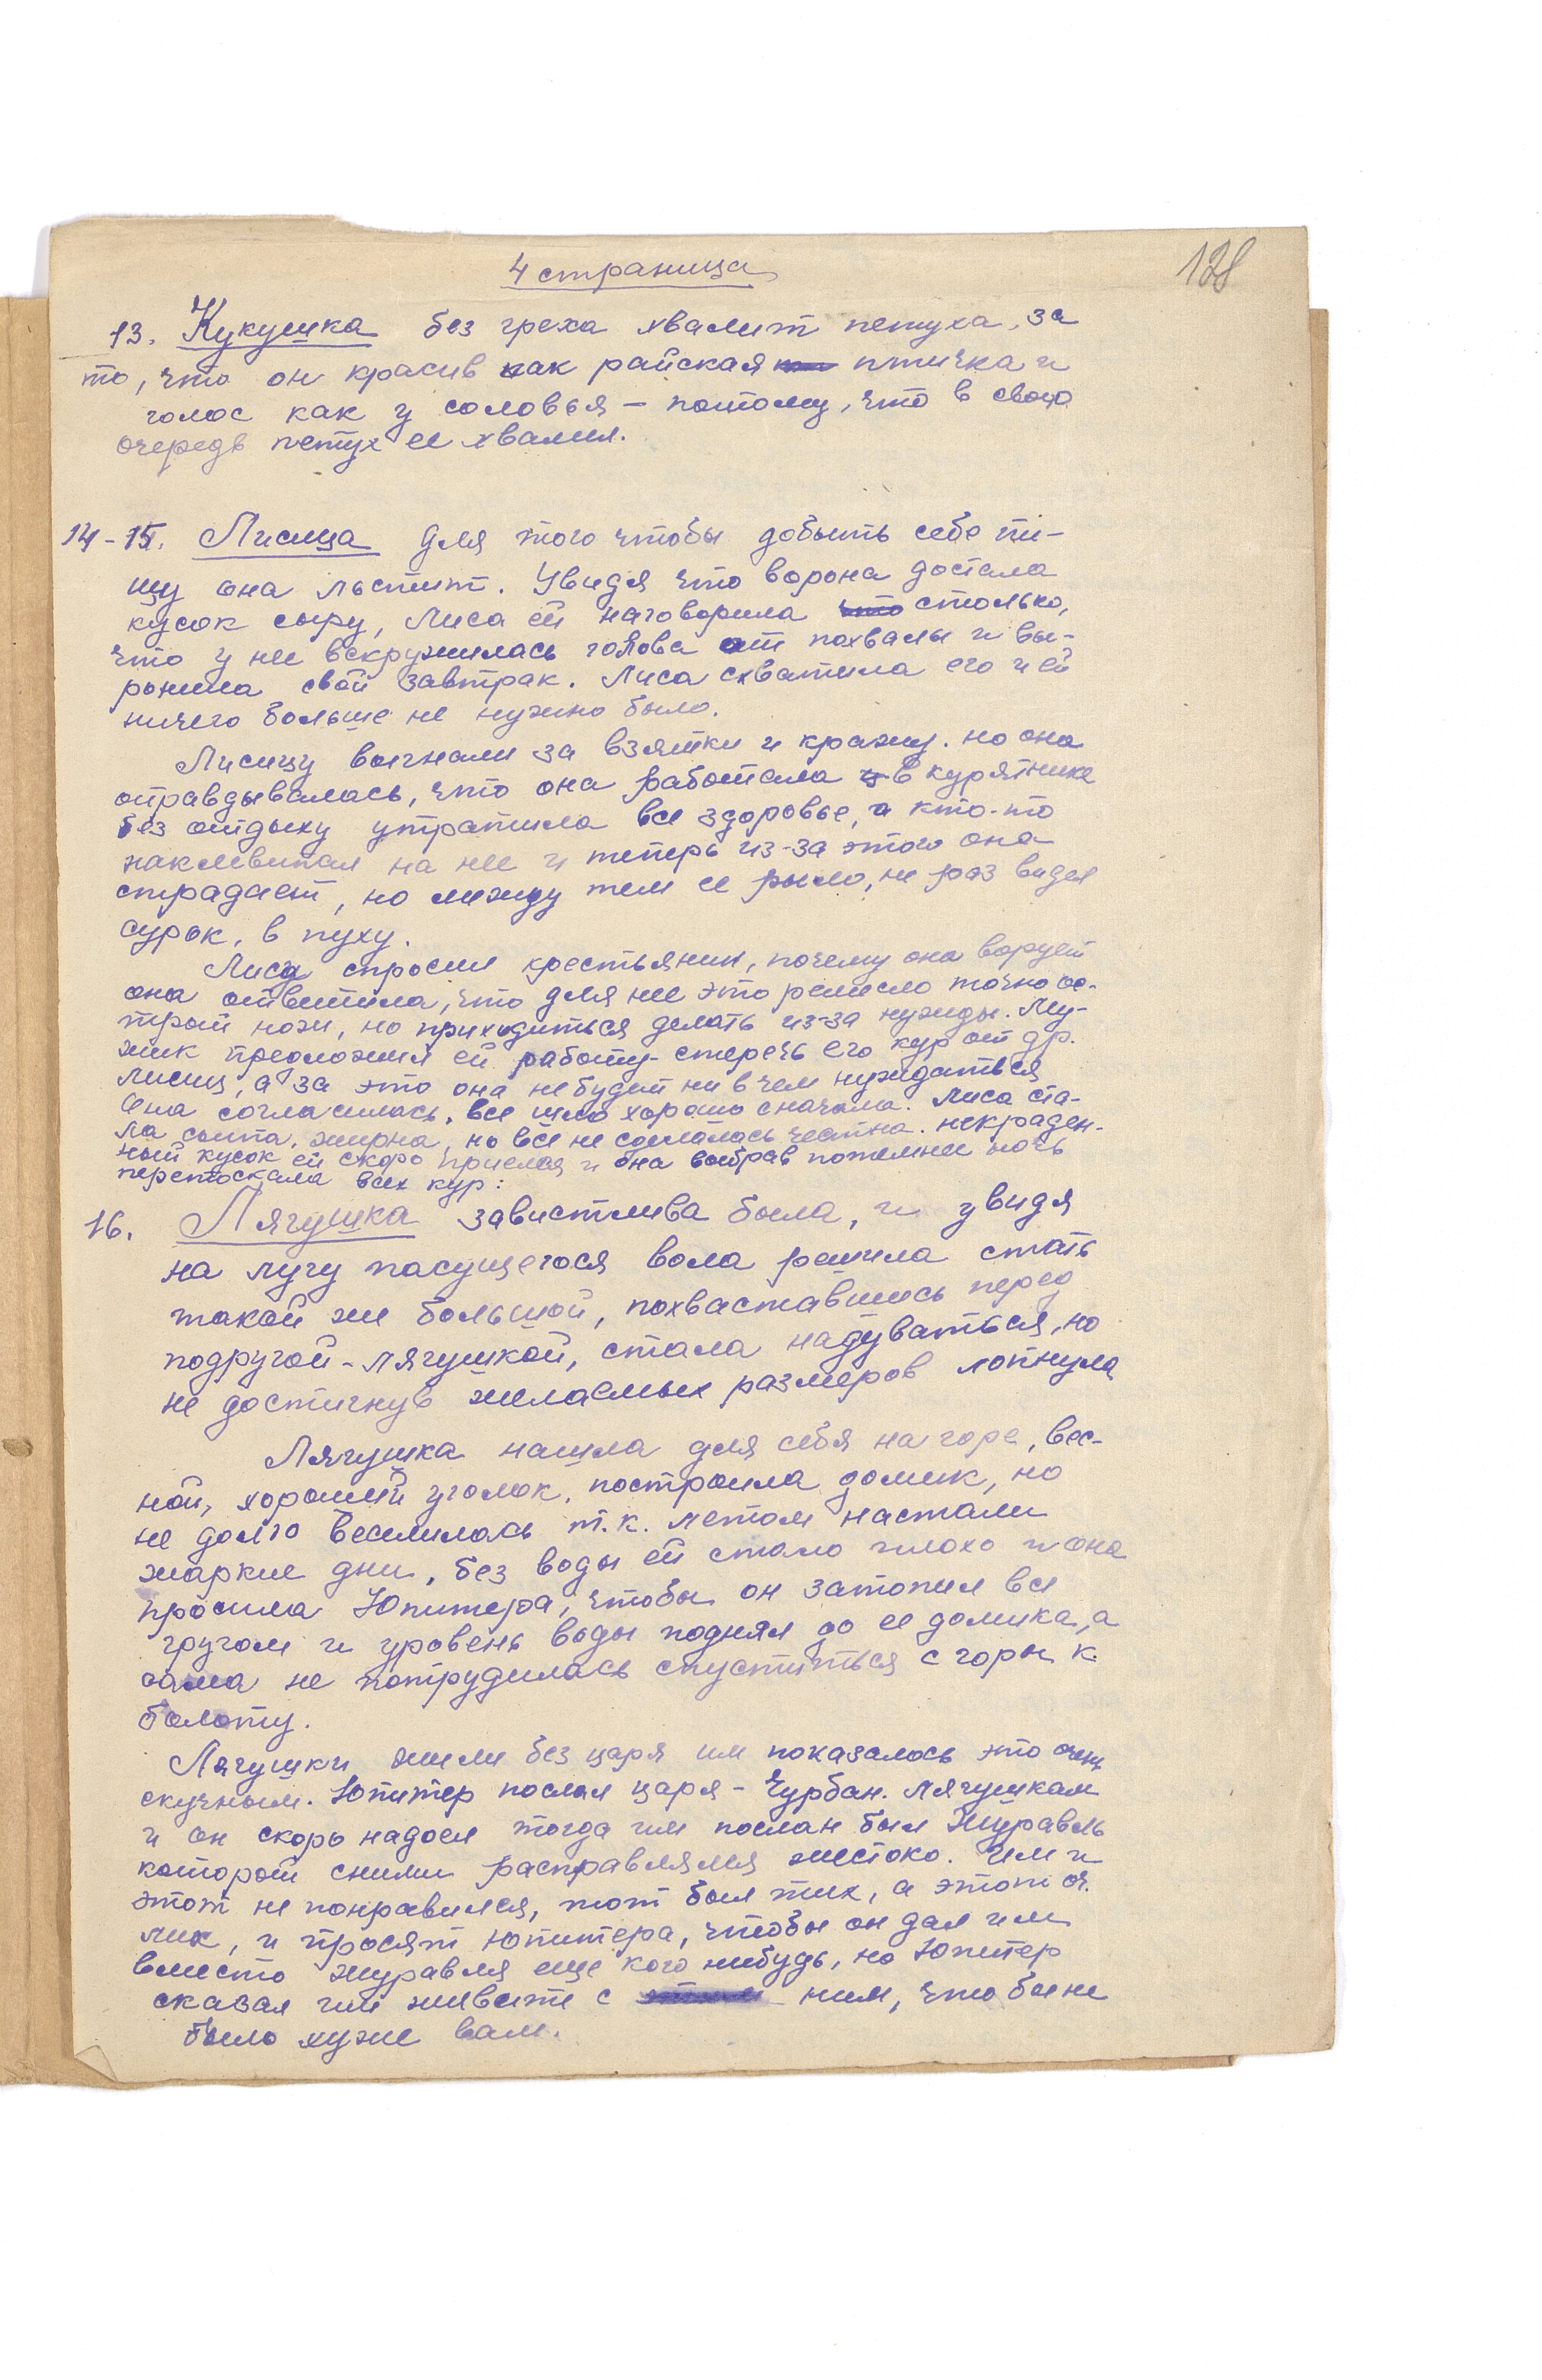 128
4 страница
13. Кукушка без греха хвалит петуха, за
то, что он красив как райская птичка и
голос как у соловья – потому, что в свою
очередь петух ее хвалил.
14-15. Лисица для того чтобы добыть себе пи-
щу она льстит. Увидя что ворона достала
кусок сыру, Лиса ей наговорила что столько,
что у нее вскружилась голова от похвалы и вы-
ронила свой завтрак. Лиса схватила его и ей
ничего больше не нужно было.
Лисицу выгнали за взятки и кражу. но она
оправдывалась, что она работала в курятнике
без отдыху утратила все здоровье, а кто-то
наклеветал на нее и теперь из-за этого она
страдает, но между тем ее рыло, не раз видел
сурок, в пуху.
Лису спросил крестьянин, почему она ворует
она ответила, что для нее это ремесло точно ос-
трый нож, но приходиться делать из-за нужды. Му-
жик предложил ей работу- стеречь его кур от др.
лисиц, а за это она не будет ни в чем нуждаться
Она согласилась, все шло хорошо сначала. Лиса ста-
ла сыта, жирна, но всё не сделалась честна. некраден-
ный кусок ей скоро приелся и она выбрав потемнее ночь
перетоскала всех кур:
16. Лягушка завистлива была, и увидя
на лугу пасущегося вола решила стать
такой же большой, похваставшись перед
подругой-лягушкой, стала надуваться, но
не достигнув желаемых размеров лопнула
Лягушка нашла для себя на горе, вес-
ной, хороший уголок, построила домик, но
не долго веселилась т.к. летом настали
жаркие дни, без воды ей стало плохо и она
просила Юпитера, чтобы он затопил все
кругом и уровень воды поднял до ее домика, а
сама не потрудилась спуститься с горы к
болоту.
Лягушки жили без царя им показалось это очень
скучным. Юпитер послал царя – Чурбан. Лягушкам
и он скоро надоел тогда им послан был Журавль
который сними расправлялся жестоко. Им и
этот не понравился, тот был тих, а этот
лих, и просят Юпитера, чтобы он дал им
вместо журавля еще кого нибудь, но Юпитер
сказал им живите с ним, что бы не
было хуже вам.